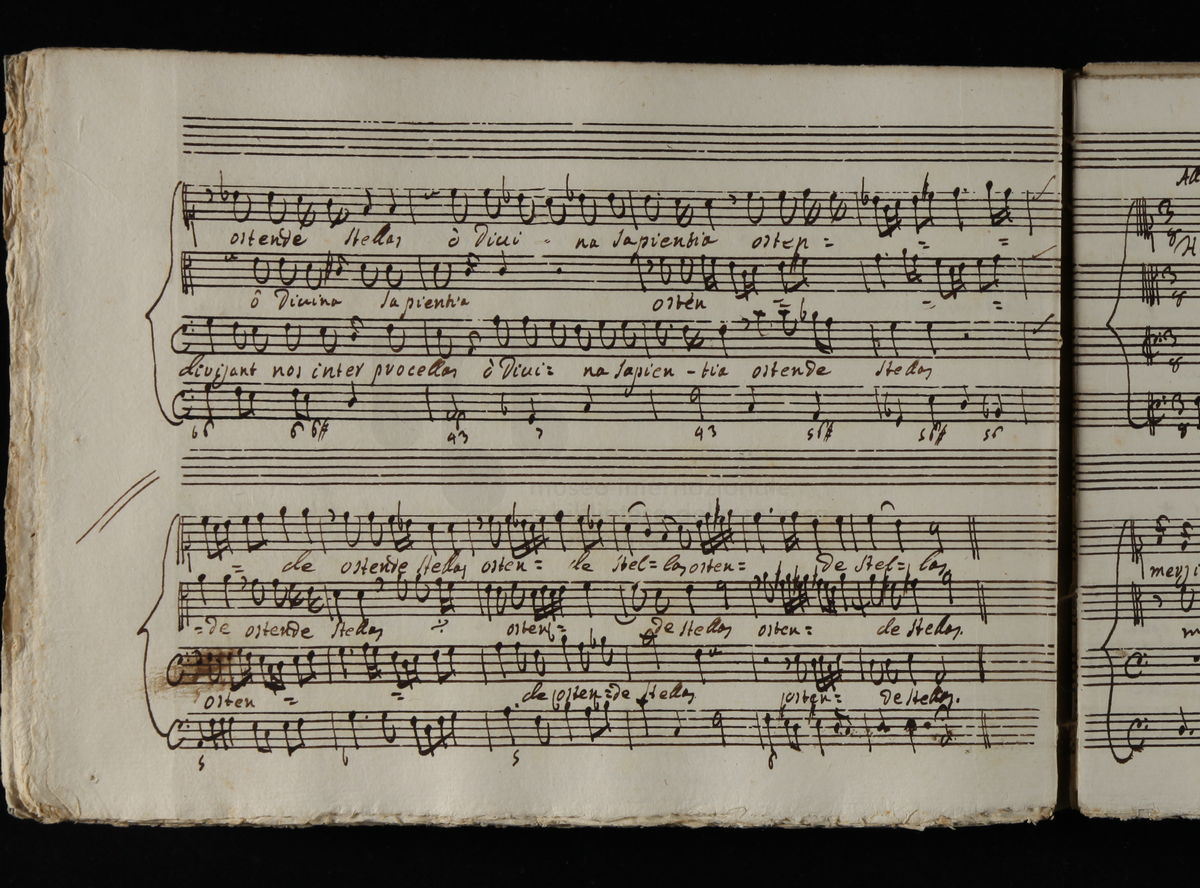 ostende stellas ò Divi - na sapientia osten = = =
ô Divina sapientia osten = = =
divisant nos inter procellas ò Divi= na sapien - tia ostende stellas
6 6 6 6# 43 7 43 56# 56# 56
= de ostende stellas osten = de stel = las osten = de stel = las
= de ostende stellas osten = de stellas osten = de stellas.
osten = = de osten = de stellas osten = de stellas.
5 6 5 6
All
3
8
H
3
8
3
8
3
8